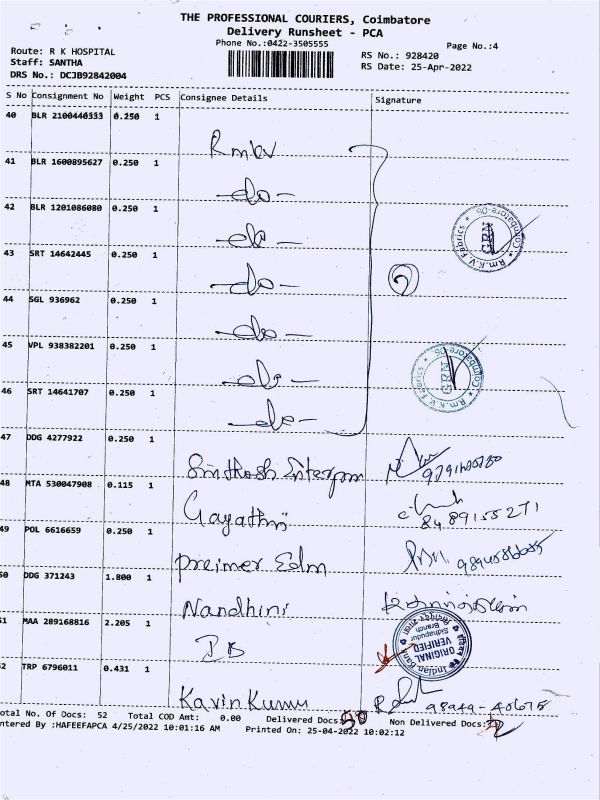 THE PROFESSIONAL COURIERS, Coimbatore
Delivery Runsheet - PCA
Phone No.:0422-3505555
Page No.:4
Route: R K HOSPITAL
Staff: SANTHA
DRS No.: DCJB92842004
RS No.: 928420
RS Date: 25-Apr-2022
S No Consignment No Weight PCS Consignee Details Signature
40 BLR 2100440333 0.250 1
Rmkv
41 BLR 1600895627 0.250 1
-do-
42 BLR 1201086080 0.250 1
-do-
43 SRT 14642445 0.250 1
-do-
44 SGL 936962 0.250 1
-do-
45 VPL 938382201 0.250 1
-do-
46 SRT 14641707 0.250 1
-do-
Rm.K.V Fabrics * Coimbatore-06
Rm.K.V Fabrics * Coimbatore-06
47 DDG 4277922 0.250 1
48 MTA 530047908 0.115 1
Gayathri 8489155271
49 POL 6616659 0.250 1
Preimer Edm
50 DDG 371243 1.800 1
Nandhini
51 MAA 289168816 2.205 1
IB
Indian Bank
ORIGINAL
VERIFIED
Sidhapudur
Branch
52 TRP 6796011 0.431 1
Kavin Kumar 98949-40675
otal No. Of Docs: 52 Total COD Amt: 0.00 Delivered Docs: Non Delivered Docs:
ntered By :HAFEEFAPCA 4/25/2022 10:01:16 AM Printed On: 25-04-2022 10:02:12